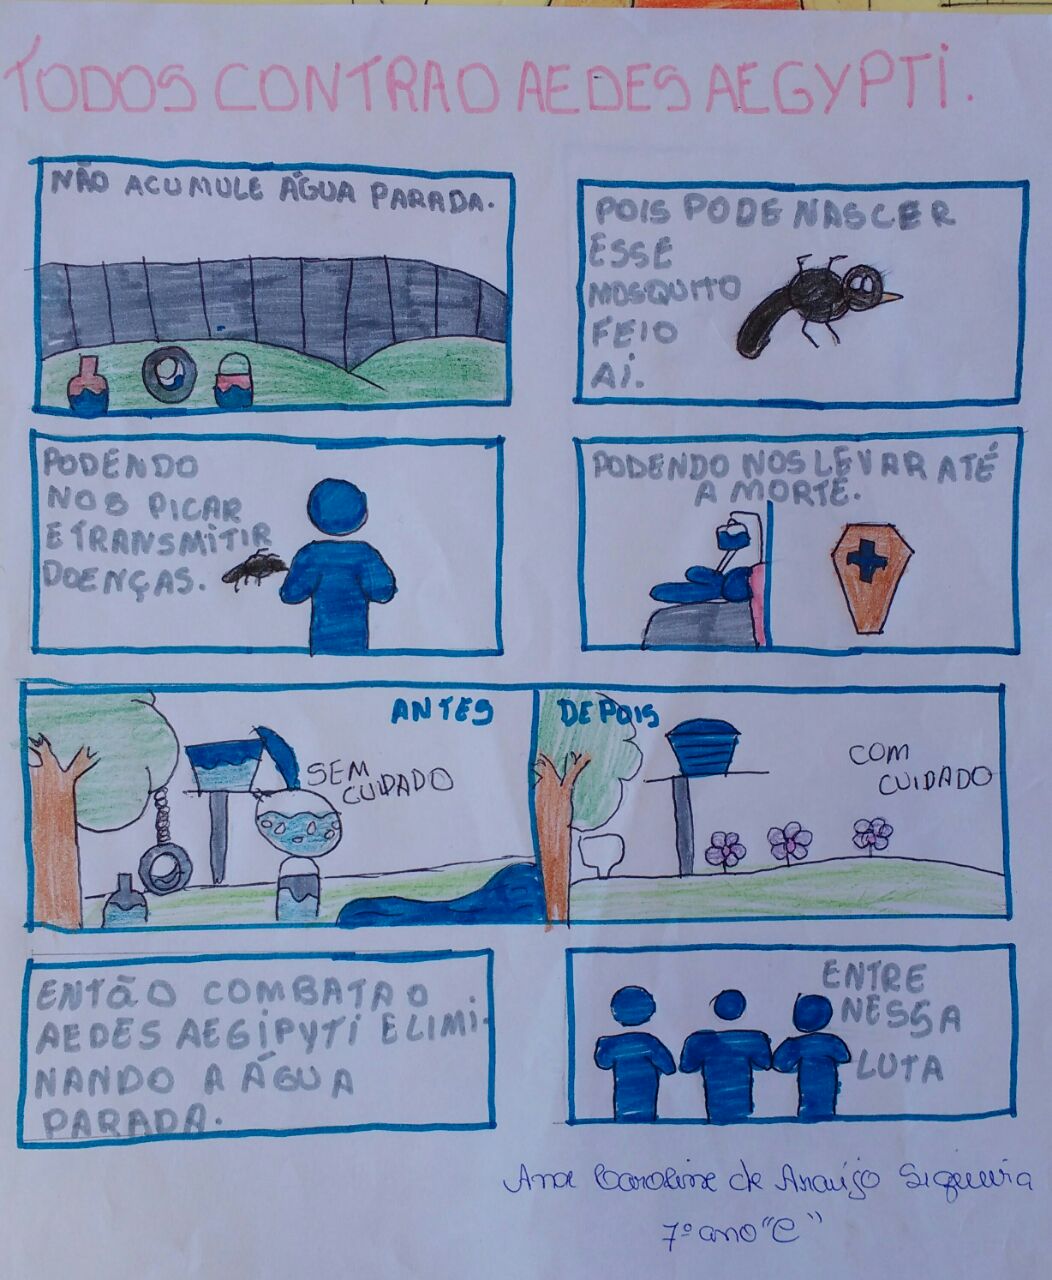 TODOS CONTRA O AEDES AEGYPTI.
NÃO ACUMULE ÁGUA PARADA.
POIS PODE NASCER
ESSE
MOSQUITO
FEIO
AÍ.
PODENDO
NOS PICAR
E TRANSMITIR
DOENÇAS.
PODENDO NOS LEVAR ATÉ
A MORTE.
ANTES
SEM
CUIDADO
DEPOIS
COM
CUIDADO
ENTÃO COMBATA O
AEDES AEGIPYTI ELIMI-
NANDO A ÁGUA
PARADA.
ENTRE
NESSA
LUTA
Ana Caroline de Araújo Siqueira
7º ano "C"